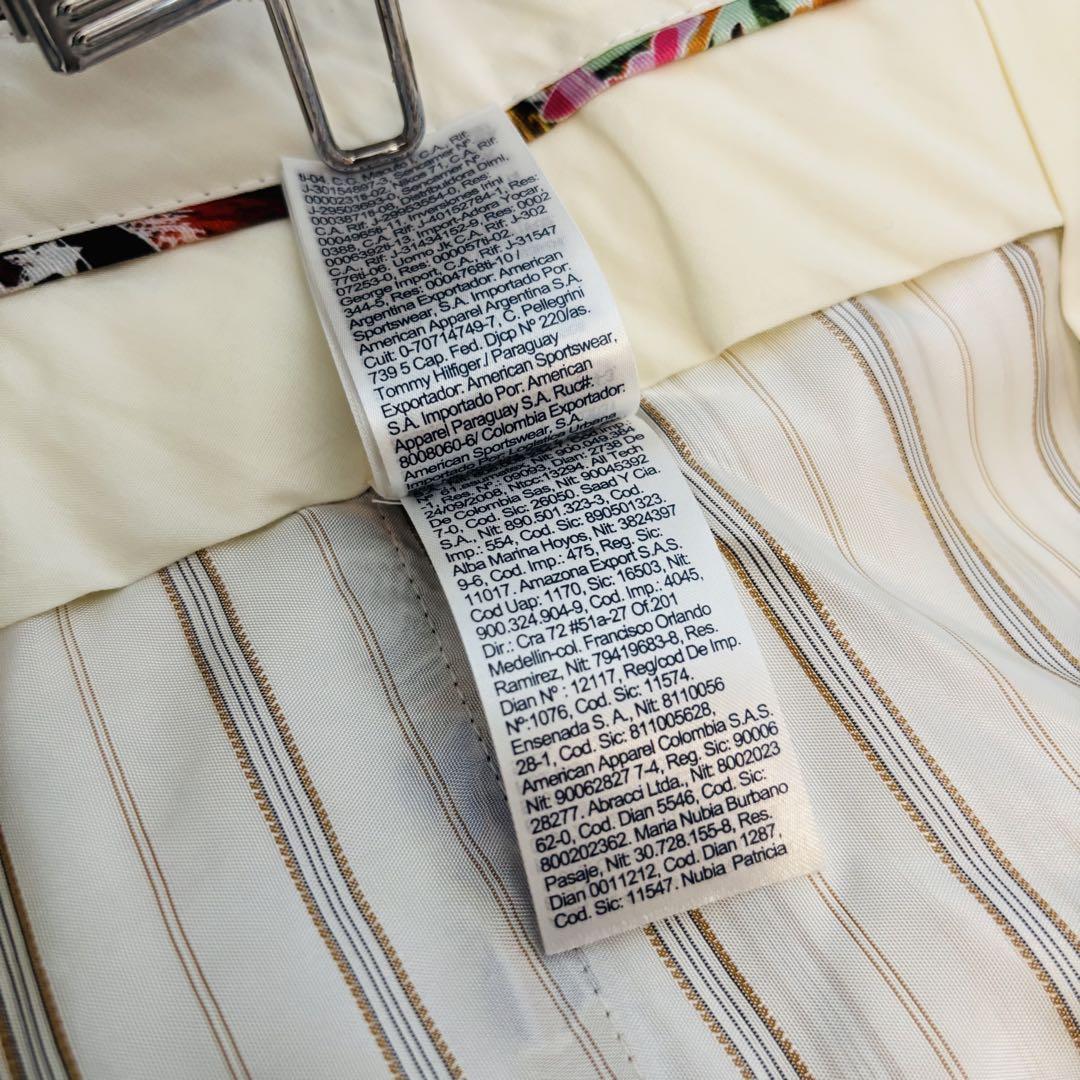 ti-04. C.C. C.A., Rif.
J-30154897-2, Sencamer Nº
00023183-02, 71, C.A., Rif.
J-29503803-0, Sencamer Nº
00038718-03, Distribuidora Diml,
C.A. Rif. J-29953554-0, Res:
0004966ti- Inversiones Irini
0388, C.A. Rif. J-40152784-1, Res:
00063928-13, Importadora Yocar,
C.A., Rif: J-31434152-8, Res: 0002
776ti-06, Jomo Jk C.A., Rif: J-302
07253-0, Res: 00057ti-02,
George Import, C.A., Rif: J-31547
344-5, Res: 0004768ti-10 /
Argentina Exportador: American
Sportswear, S.A. Importado Por:
American Apparel Argentina S.A.
Cuit: 0-70714749-7, C. Pellegrini
739 5 Cap. Fed. Djcp Nº 220/as.
Tommy Hilfiger./ Paraguay
Exportador: American Sportswear,
S.A. Importado Por: American
Apparel Paraguay S.A. Ruc#:
8008060-6/ Colombia Exportador:
American Sportswear, S.A.
Importado Por: Logistica Urbana
900.949.364
-1, Res. Nº: 09093, Dian: 2738 De
24/09/2008, Ntcc: 13294, All Tech
De Colombia Sas, Nit: 90045392
7-0, Cod. Sic: 26050, Saad Y Cia.
S.A., Nit: 890.501.323-3, Cod.
Imp.: 554, Cod. Sic: 890501323.
Alba Marina Hoyos, Nit: 3824397
9-6, Cod. Imp.: 475, Reg. Sic:
11017. Amazona Export S.A.S.
Cod Uap: 1170, Sic: 16503, Nit:
900.324.904-9, Cod. Imp.: 4045,
Dir.: Cra 72 #51a-27 Of.201
Medellin-col. Francisco Orlando
Ramirez, Nit: 79419683-8, Res.
Dian Nº : 12117, Reg/cod De Imp.
Nº:1076, Cod. Sic: 11574.
Ensenada S. A., Nit: 8110056
28-1, Cod. Sic: 811005628,
American Apparel Colombia S.A.S.
Nit: 90062827 7-4, Reg. Sic: 90006
28277. Abracci Ltda., Nit: 8002023
62-0, Cod. Dian 5546, Cod. Sic:
800202362. Maria Nubia Burbano
Pasaje, Nit: 30.728.155-8, Res.
Dian 0011212, Cod. Dian 1287,
Cod. Sic: 11547. Nubia Patricia